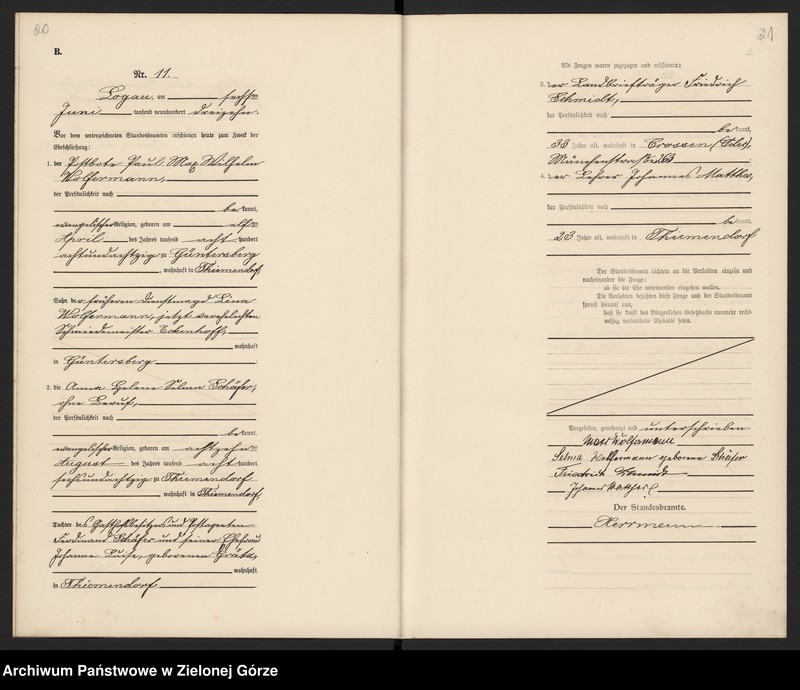 20
B.
Nr. 11.
Logau, am sechsten
Juni tausend neunhundert dreizehn.
Vor dem unterzeichneten Standesbeamten erschienen heute zum Zweck der
Eheschließung:
1. der Postbote Paul Max Wilhelm
Wolfermann,
der Persönlichkeit nach
be kannt,
evangelischer Religion, geboren am elften
April des Jahres tausend acht hundert
achtundachtzig zu Güntersberg
, wohnhaft in Thiemendorf,
Sohn der früheren Dienstmagd Lina
Wolfermann, jetzt verehelichten
Schmiedemeister Eckenhoff,
wohnhaft
in Güntersberg
2. die Anna Helene Selma Schäfer,
ohne Beruf,
der Persönlichkeit nach
be kannt,
evangelischer Religion, geboren am achtzehnten
August des Jahres tausend acht hundert
sechsundachtzig zu Thiemendorf
, wohnhaft in Thiemendorf,
Tochter des Gasthofbesitzers und Postagenten
Ferdinand Schäfer und seiner Ehefrau
Johanne Luise, geborenen
wohnhaft
in Thiemendorf
21
Als Zeugen waren zugezogen und erschienen:
3. der Landbriefträger Friedrich
Schmidt,
der Persönlichkeit nach
be kannt,
33 Jahre alt, wohnhaft in Crossen (Oder),
Münchenstraße
4. der Lehrer Johannes
der Persönlichkeit nach
be kannt,
23 Jahre alt, wohnhaft in Thiemendorf
Der Standesbeamte richtete an die Verlobten einzeln und
nacheinander die Frage:
ob sie die Ehe miteinander eingehen wollen.
Die Verlobten bejahten diese Frage und der Standesbeamte
sprach hierauf aus,
daß sie kraft des Bürgerlichen Gesetzbuchs nunmehr recht-
mäßig verbundene Eheleute seien.
Vorgelesen, genehmigt und unterschrieben.
Max Wolfermann
Selma Wolfermann geborene Schäfer
Friedrich Schmidt
Johannes
Der Standesbeamte.
Herrmann
Archiwum Państwowe w Zielonej Górze